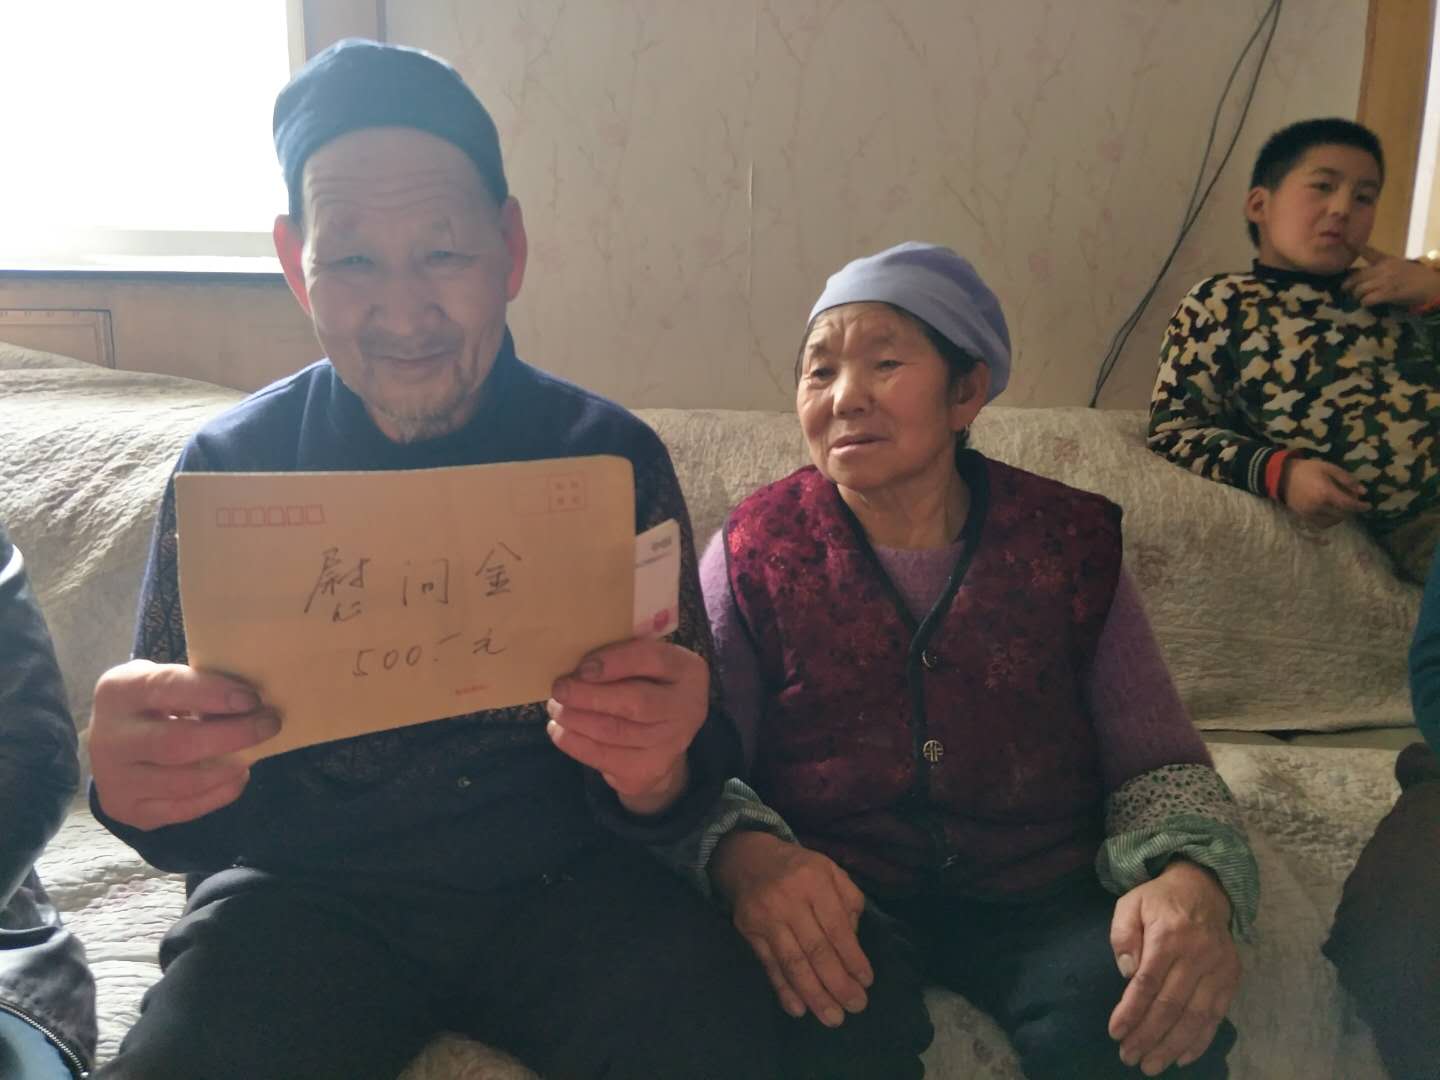 慰问金
500.一元